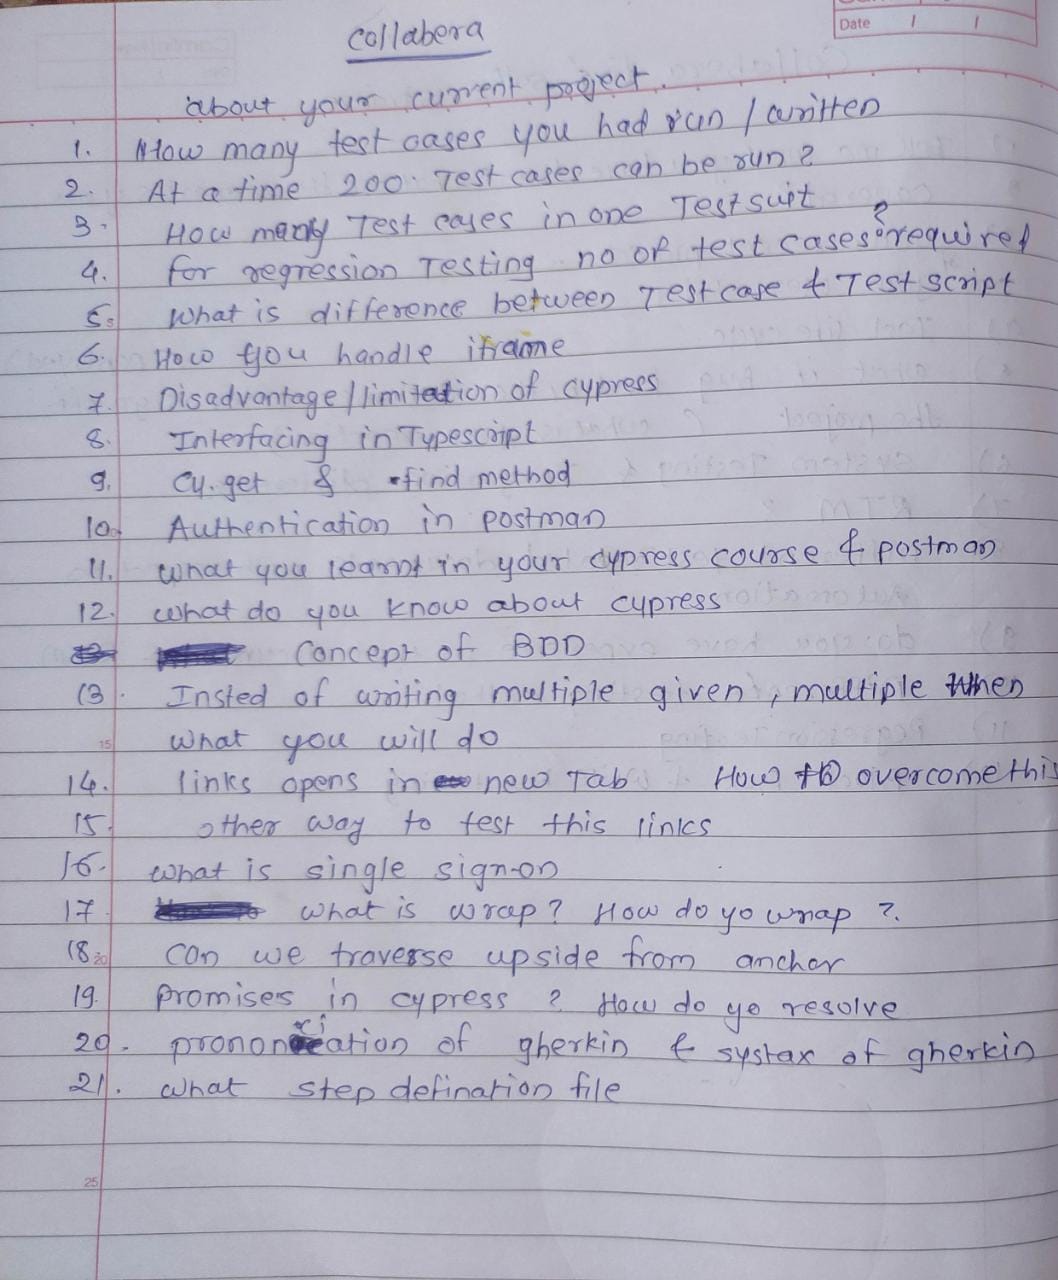 Date / /
Collabera
about your current project.
1. How many test cases you had run / written
2. At a time 200. Test cases can be run?
3. How many Test cases in one Test suit ?
4. for regression Testing no of test cases required
5. What is difference between Test case & Test script
6. How you handle iframe
7. Disadvantage / limitation of cypress
8. Interfacing in Typescript
9. Cy.get & .find method
10. Authentication in postman
11. what you learnt in your cypress course & postman
12. what do you know about cypress
Concept of BDD
13. Insted of writing multiple given, multiple when
15
what you will do
14. links opens in new Tab How to overcome this
15. other way to test this links
16. what is single sign-on
17. what is wrap? How do yo wrap ?.
18. 20 can we traverse upside from anchor
19. promises in cypress ? How do yo resolve
20. prononciation of gherkin & systax of gherkin
21. what step defination file
25